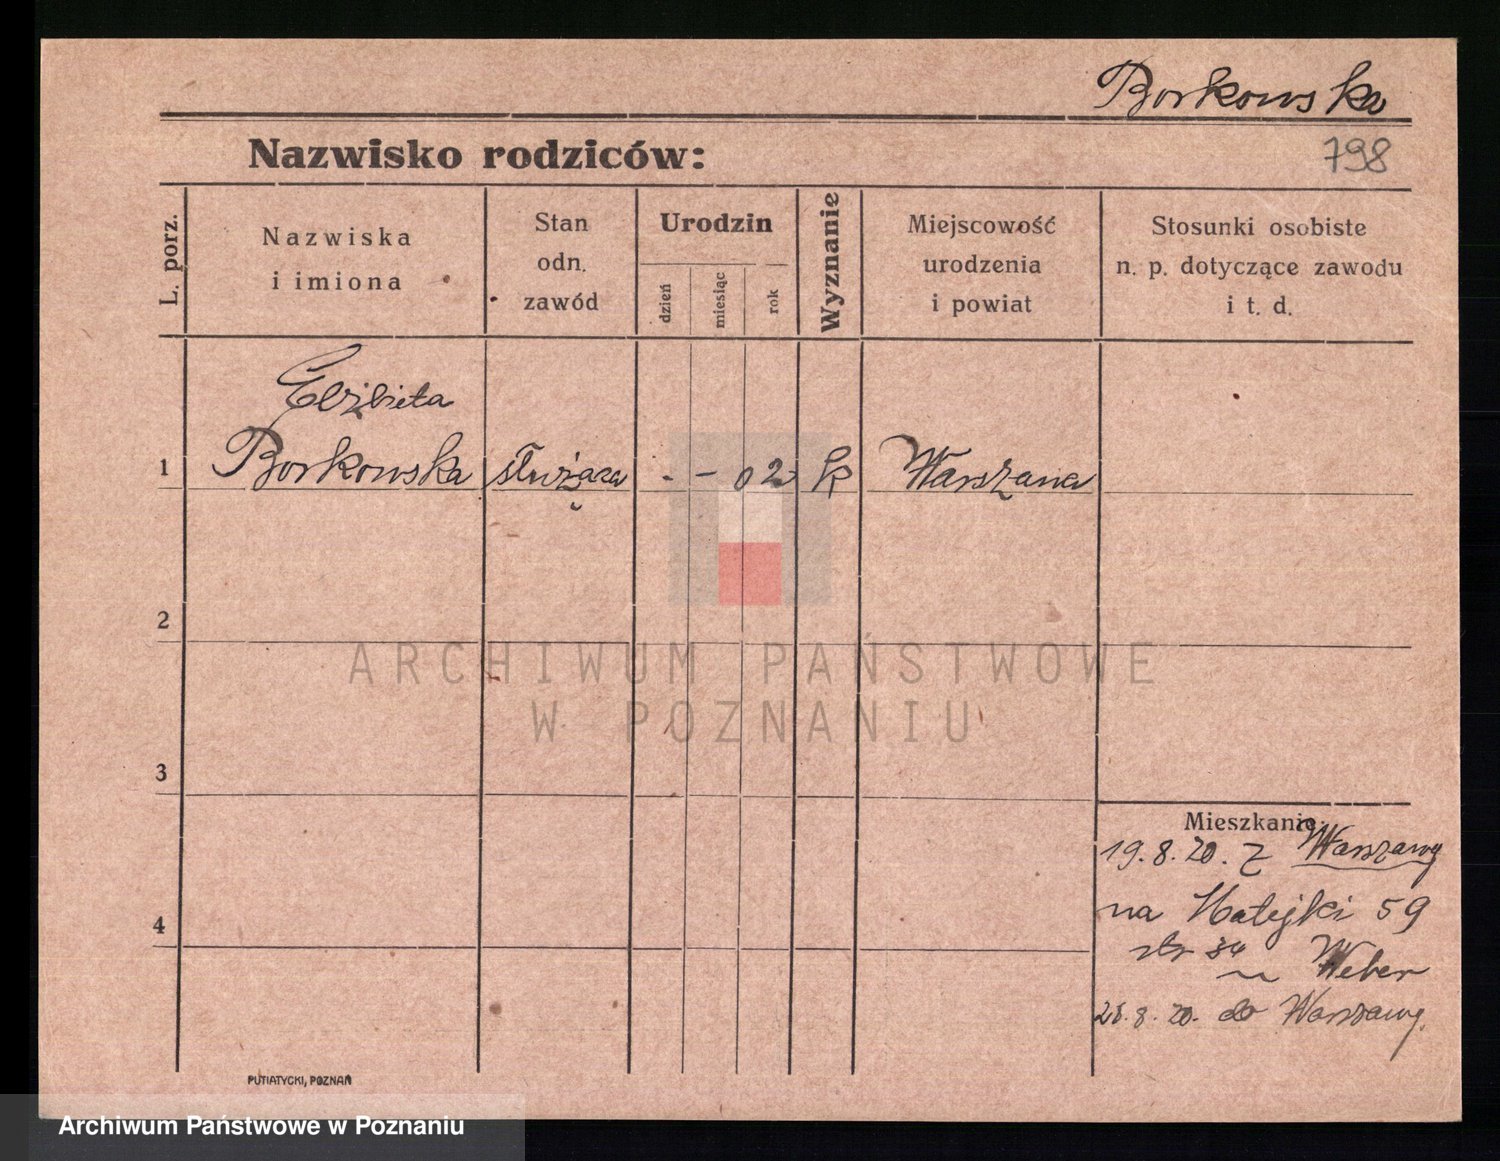 Borkowska
Nazwisko rodziców:
798
L. porz.
Nazwiska
i imiona
Stan
odn.
zawód
Urodzin
dzień
miesiąc
rok
Wyznanie
Miejscowość
urodzenia
i powiat
Stosunki osobiste
n. p. dotyczące zawodu
i t. d.
Elżbieta
1 Borkowska służąca - - 02 k Warszawa
2
3
4
ARCHIWUM PAŃSTWOWE
W POZNANIU
Mieszkanie
19.8.20. z Warszawy
na Matejki 59
str 34
u Weber
28.8.20. do Warszawy.
PUTIATYCKI, POZNAŃ
Archiwum Państwowe w Poznaniu